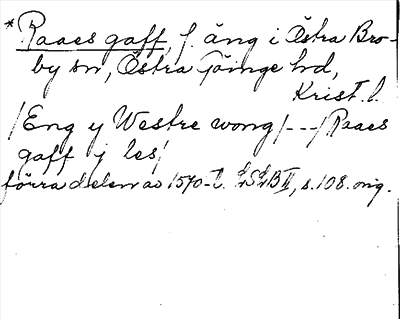 * Raaes gaff, f. äng i Östra Bro-
by sn, Östra Göinge hd,
Krist. l.
/Eng y Westre wong/---/Raaes
gaff j les/
förra delen av 1570-t. LSLB II, s. 108. orig.